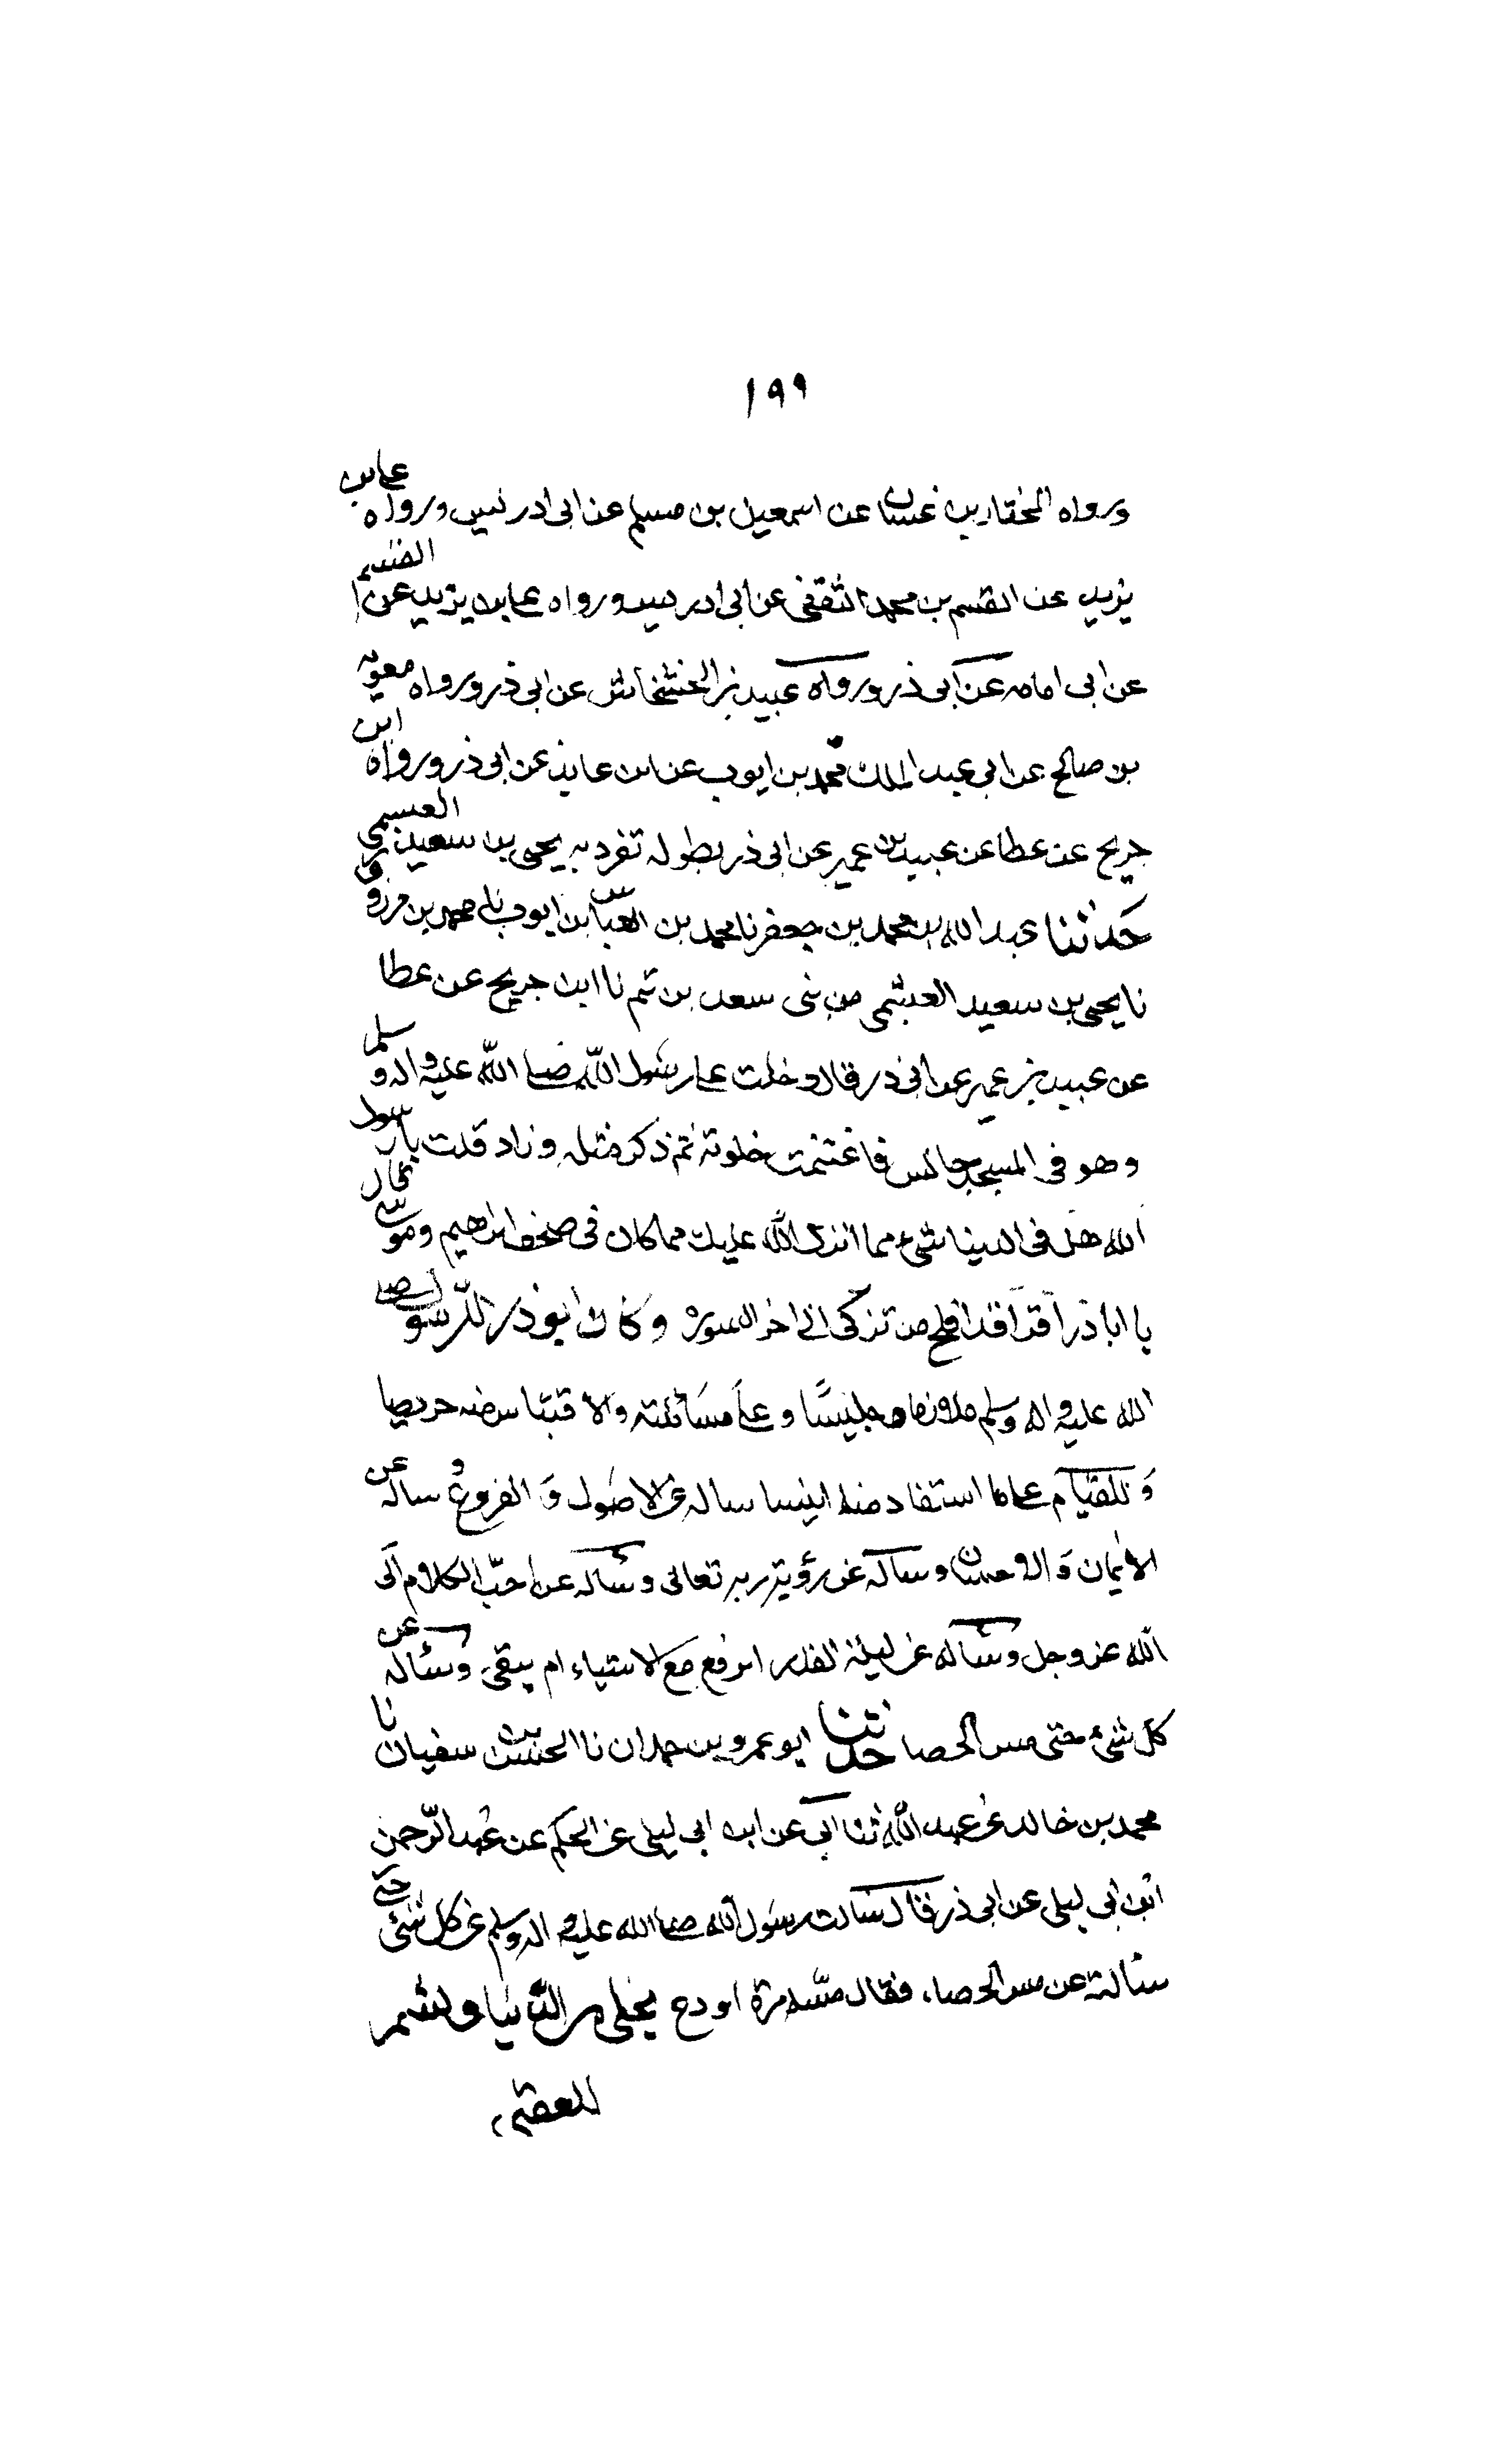 ١٩٩
ورواه المختار بن غسان عن اسمعيل بن مسلم عن ابى ادريس ورواه على بن
يزيد عن القسم بن محمد الثقفى عن ابى ادريس ورواه على بن يزيد عن القسم
عن ابى امامه عن ابى ذر ورواه عبيد بن الخشخاش عن ابى ذر ورواه معوية
بن صالح عن ابى عبد الملك محمد بن ايوب عن ابن عايذ عن ابى ذر ورواه ابن
جريح عن عطا عن عبيد بن عمير عن ابى ذر بطوله تفرد به يحيى بن سعيد العبسمى
حدثنا عبد الله بن محمد بن جعفر نا محمد بن العباس بن ايوب نا محمد بن مرزوق
نا يحيى بن سعيد العبشمى من بنى سعد بن تيم نا ابن جريح عن عطا
عن عبيد بن عمير عن ابى ذر قال دخلت على رسول الله صلى الله عليه واله وسلم
وهو فى المسجد جالس فاغتنمت خلوته ثم ذكر مثله وزاد قلت يا رسول
الله هل فى الدنيا شىء مما انزل الله عليك مما كان فى صحف ابراهيم وموسى قال
يا ابا ذر اقرا قد افلح من تزكى الى اخر السوره وكان ابو ذر للرسول صلى
الله عليه واله وسلم ملازما وجليسا وعلى مسائلته والاقتباس منه حريصا
وللقيام على ما استفاد منه انيسا ساله عن الاصول والفروع وساله عن
الايمان والاحسان وساله عن رؤية ربه تعالى وساله عن احب الكلام الى
الله عز وجل وساله عن ليلة القدر اترفع مع الانبياء ام يبقى وساله عن
كل شئ حتى مس الحصا حدثنا ابو عمرو بن حمدان نا الحسن بن سفيان نا
محمد بن خالد بن عبد الله ثنا ابى عن ابن ابى ليلى عن الحكم عن عبد الرحمن
ابن ابى ليلى عن ابى ذر قال سالت رسول الله صلى الله عليه واله وسلم عن كل شئ حتى
سالته عن مس الحصا، فقال مسه مرة او دع يخلى من الدنيا ولشمر
للعقبى،